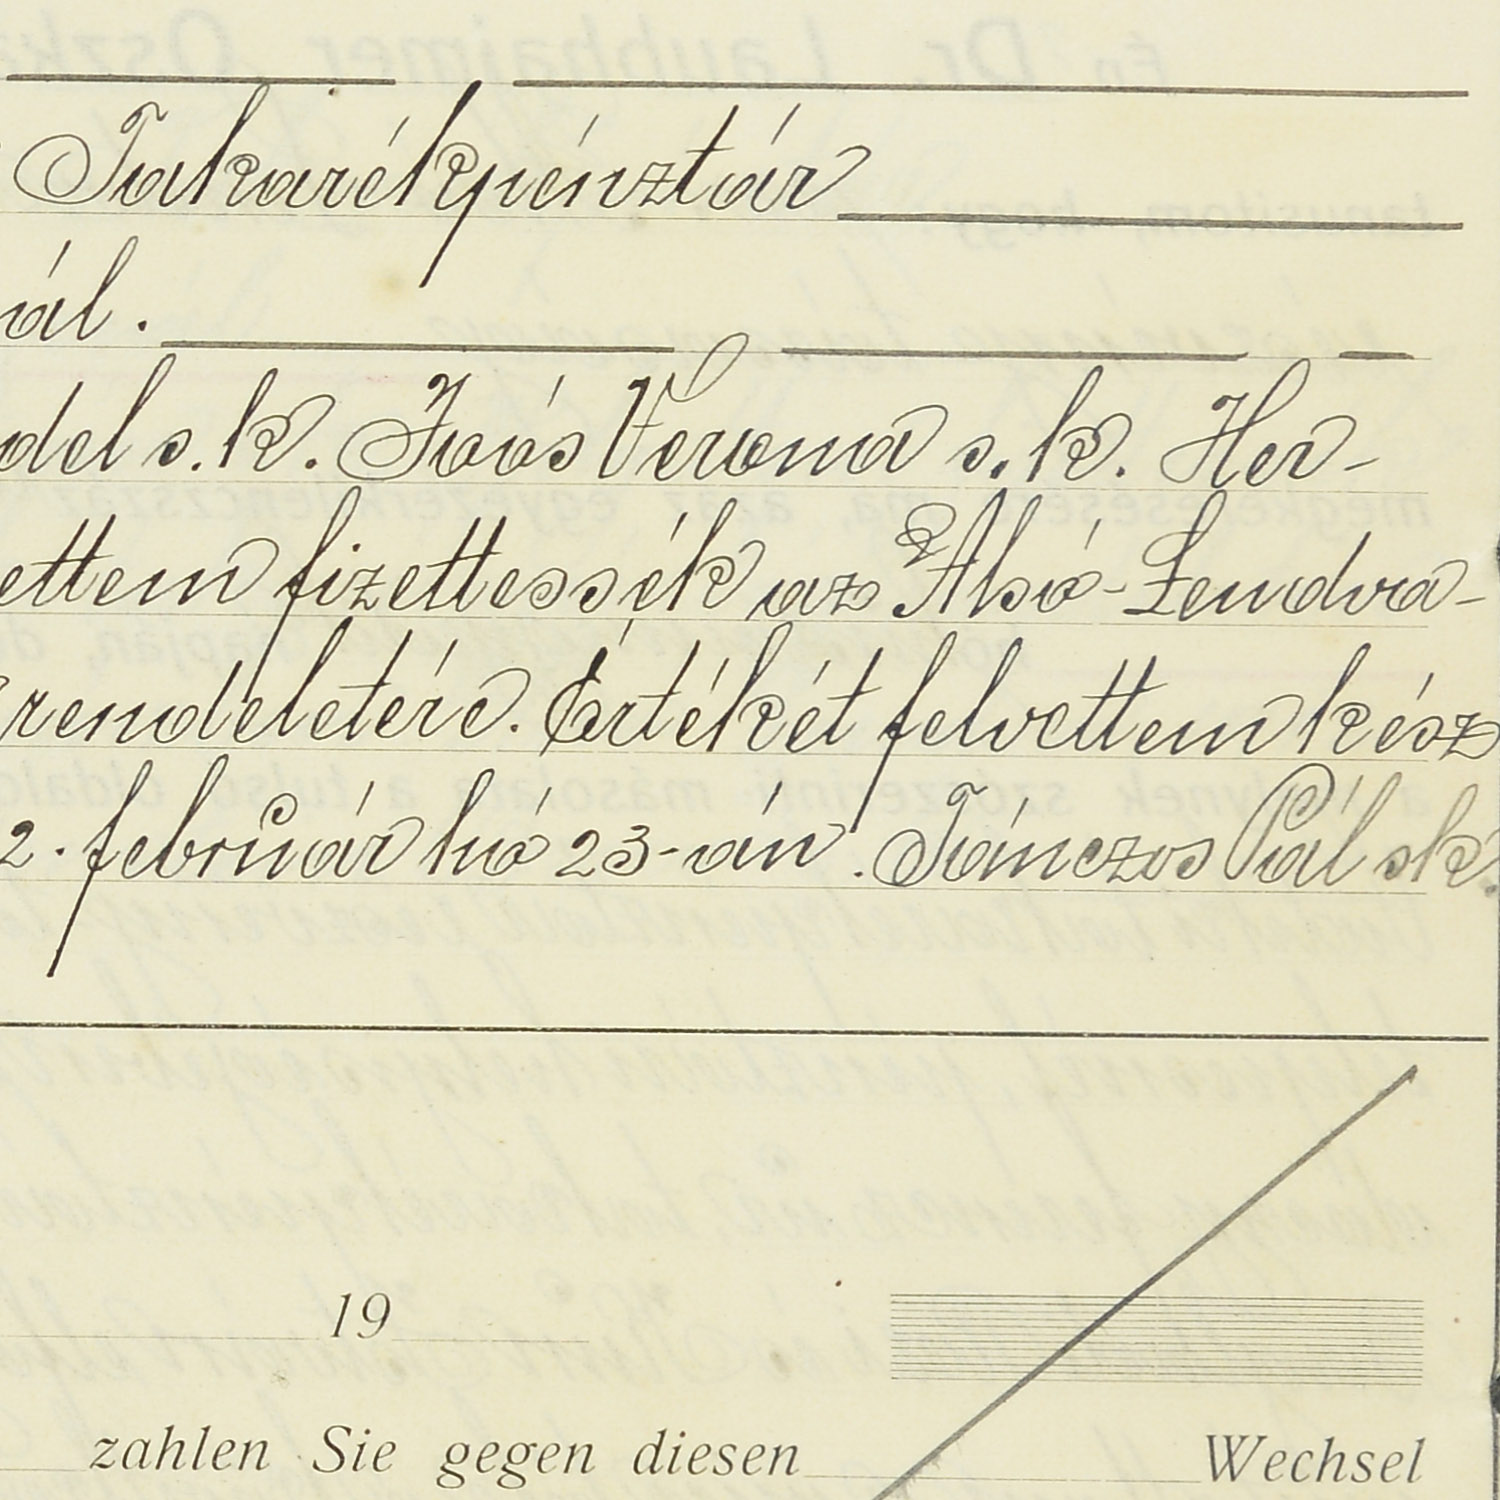 Takarékpénztár
ál.
del s.k. Joós Verona s.k. Her-
ettem fizettessék az Alsó-Lendva-
rendeletére. Értékét felvettem kész
2. február hó 23-án. Tánczos Pál sk.
19
zahlen Sie gegen diesen Wechsel